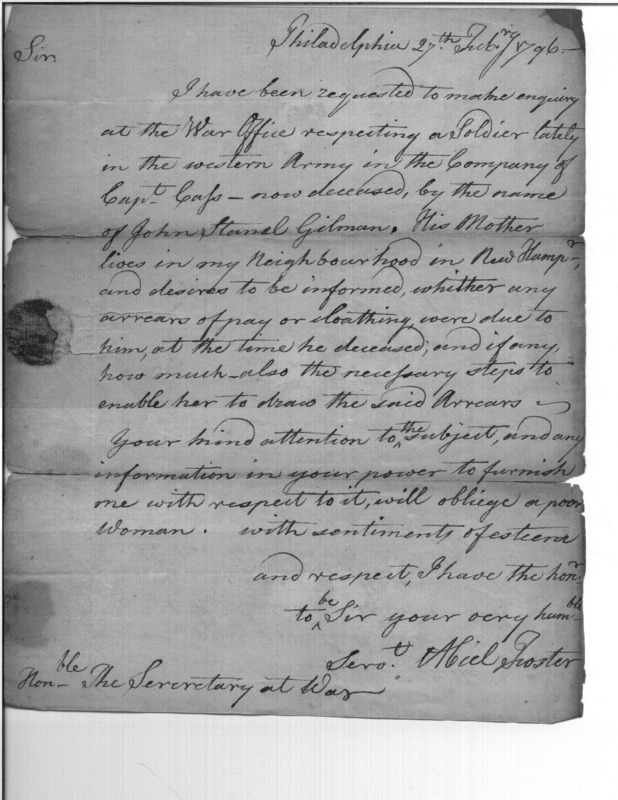 Philadelphia 27th. Feb.ry 1796.—
Sir
I have been requested to make enquiry
at the War Office respecting a Soldier lately
in the western Army in the Company of
Capt. Cass — now deceased, by the name
of John Stanel Gilman. His Mother
lives in my Neighbourhood in New Hampr,
and desires to be informed, whither any
arrears of pay or cloathing, were due to
him, at the time he deceased; and if any,
how much – also the necessary steps to
enable her to draw the said Arrears —
Your kind attention to ^the subject, and any
information in your power to furnish
me with respect to it, will obliege a poor
woman. with sentiments of esteem
and respect, I have the honr.
to ^be Sir your very humble
Servt. Abiel Foster
Honble The Secretary at War